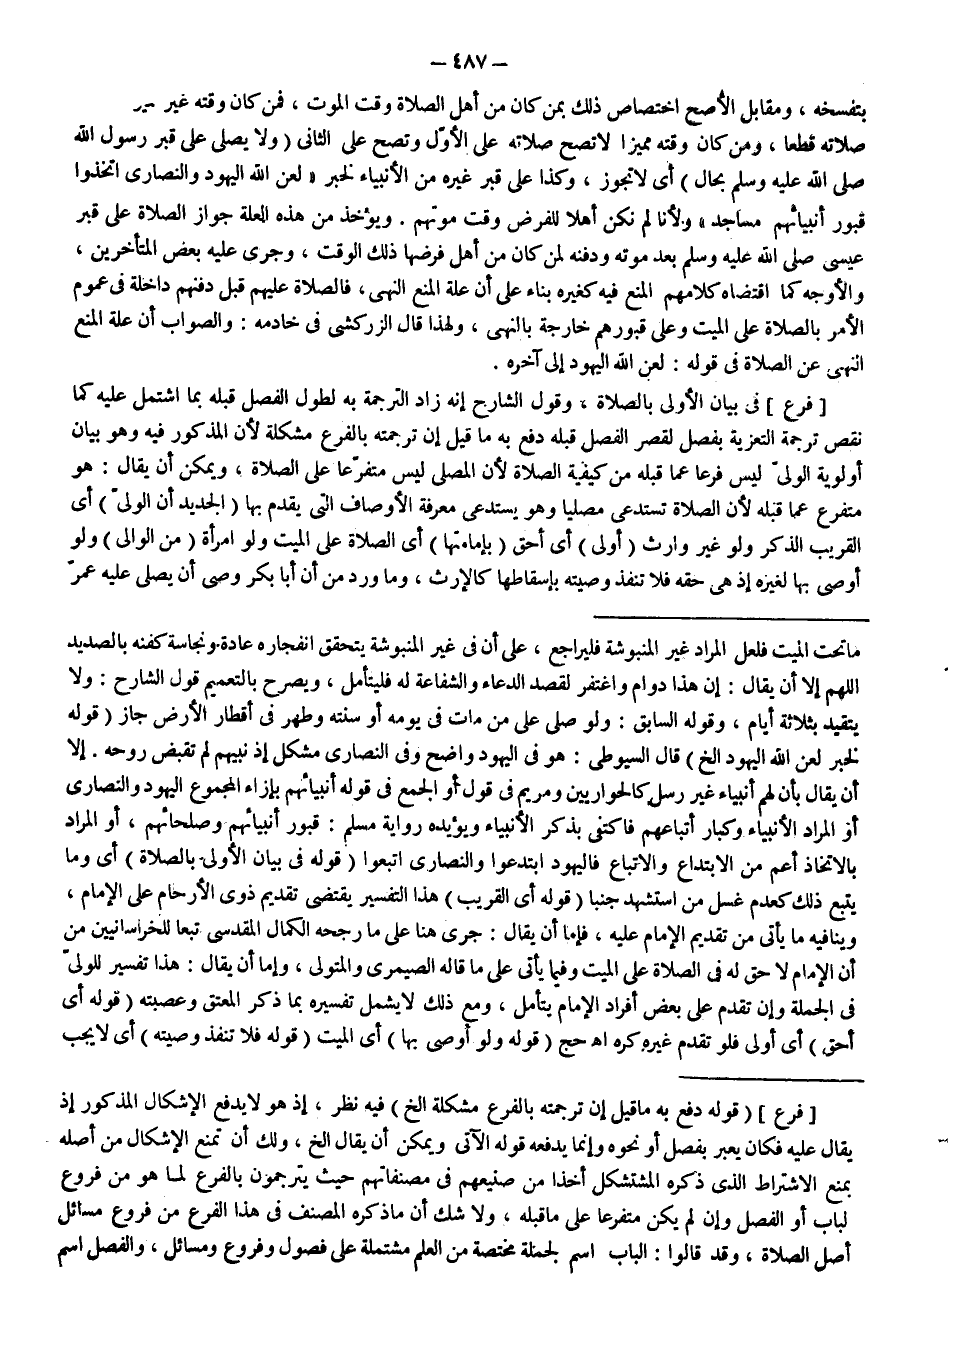 — ٤٨٧ —
بتفسخه ، ومقابل الأصح اختصاص ذلك بمن كان من أهل الصلاة وقت الموت ، فمن كان وقته غير
صلاته قطعا ، ومن كان وقته مميزا لاتصح صلاته على الأوّل وتصح على الثانى ( ولا يصلى على قبر رسول الله
صلى الله عليه وسلم بحال ) أى لاتجوز ، وكذا على قبر غيره من الأنبياء لخبر « لعن الله اليهود والنصارى اتخذوا
قبور أنبيائهم مساجد » ولأنا لم نكن أهلا للفرض وقت موتهم . ويؤخذ من هذه العلة جواز الصلاة على قبر
عيسى صلى الله عليه وسلم بعد موته ودفنه لمن كان من أهل فرضها ذلك الوقت ، وجرى عليه بعض المتأخرين ،
والأوجه كما اقتضاه كلامهم المنع فيه كغيره بناء على أن علة المنع النهى ، فالصلاة عليهم قبل دفنهم داخلة فى عموم
الأمر بالصلاة على الميت وعلى قبورهم خارجة بالنهى ، ولهذا قال الزركشى فى خادمه : والصواب أن علة المنع
النهى عن الصلاة فى قوله : لعن الله اليهود إلى آخره .
[ فرع ] فى بيان الأولى بالصلاة ، وقول الشارح إنه زاد الترجمة به لطول الفصل قبله بما اشتمل عليه كما
نقص ترجمة التعزية بفصل لقصر الفصل قبله دفع به ما قيل إن ترجمته بالفرع مشكلة لأن المذكور فيه وهو بيان
أولوية الولىّ ليس فرعا عما قبله من كيفية الصلاة لأن المصلى ليس متفرّعا على الصلاة ، ويمكن أن يقال : هو
متفرع عما قبله لأن الصلاة تستدعى مصليا وهو يستدعى معرفة الأوصاف التى يقدم بها ( الجديد أن الولىّ ) أى
القريب الذكر ولو غير وارث ( أولى ) أى أحق ( بإمامتها ) أى الصلاة على الميت ولو امرأة ( من الوالى ) ولو
أوصى بها لغيره إذ هى حقه فلا تنفذ وصيته بإسقاطها كالإرث ، وما ورد من أن أبا بكر وصى أن يصلى عليه عمرّ
ماتحت الميت فلعل المراد غير المنبوشة فليراجع ، على أن فى غير المنبوشة يتحقق انفجاره عادة ونجاسة كفنه بالصديد
اللهم إلا أن يقال : إن هذا دوام واغتفر لقصد الدعاء والشفاعة له فليتأمل ، ويصرح بالتعميم قول الشارح : ولا
يتقيد بثلاثة أيام ، وقوله السابق : ولو صلى على من مات فى يومه أو سنته وطهر فى أقطار الأرض جاز ( قوله
لخبر لعن الله اليهود الخ ) قال السيوطى : هو فى اليهود واضح وفى النصارى مشكل إذ نبيهم لم تقبض روحه . إلا
أن يقال بأن لهم أنبياء غير رسل كالحواريين ومريم فى قول أو الجمع فى قوله أنبيائهم بإزاء المجموع اليهود والنصارى
أو المراد الأنبياء وكبار أتباعهم فاكتفى بذكر الأنبياء ويؤيده رواية مسلم : قبور أنبيائهم وصلحائهم ، أو المراد
بالاتخاذ أعم من الابتداع والاتباع فاليهود ابتدعوا والنصارى اتبعوا ( قوله فى بيان الأولى بالصلاة ) أى وما
يتبع ذلك كعدم غسل من استشهد جنبا ( قوله أى القريب ) هذا التفسير يقتضى تقديم ذوى الأرحام على الإمام ،
وينافيه ما يأتى من تقديم الإمام عليه ، فإما أن يقال : جرى هنا على ما رجحه الكمال المقدسى تبعا للخراسانيين من
أن الإمام لا حق له فى الصلاة على الميت وفيما يأتى على ما قاله الصيمرى والمتولى ، وإما أن يقال : هذا تفسير للولىّ
فى الجملة وإن تقدم على بعض أفراد الإمام يتأمل ، ومع ذلك لايشمل تفسيره بما ذكر المعتق وعصبته ( قوله أى
أحق ) أى أولى فلو تقدم غيره كره اه حج ( قوله ولو أوصى بها ) أى الميت ( قوله فلا تنفذ وصيته ) أى لايجب
[ فرع ] ( قوله دفع به ماقيل إن ترجمته بالفرع مشكلة الخ ) فيه نظر ، إذ هو لايدفع الإشكال المذكور إذ
يقال عليه فكان يعبر بفصل أو نحوه وإنما يدفعه قوله الآتى ويمكن أن يقال الخ ، ولك أن تمنع الإشكال من أصله
بمنع الاشتراط الذى ذكره المستشكل أخذا من صنيعهم فى مصنفاتهم حيث يترجمون بالفرع لما هو من فروع
لباب أو الفصل وإن لم يكن متفرعا على ماقبله ، ولا شك أن ماذكره المصنف فى هذا الفرع من فروع مسائل
أصل الصلاة ، وقد قالوا : الباب اسم لجملة مختصة من العلم مشتملة على فصول وفروع ومسائل ، والفصل اسم